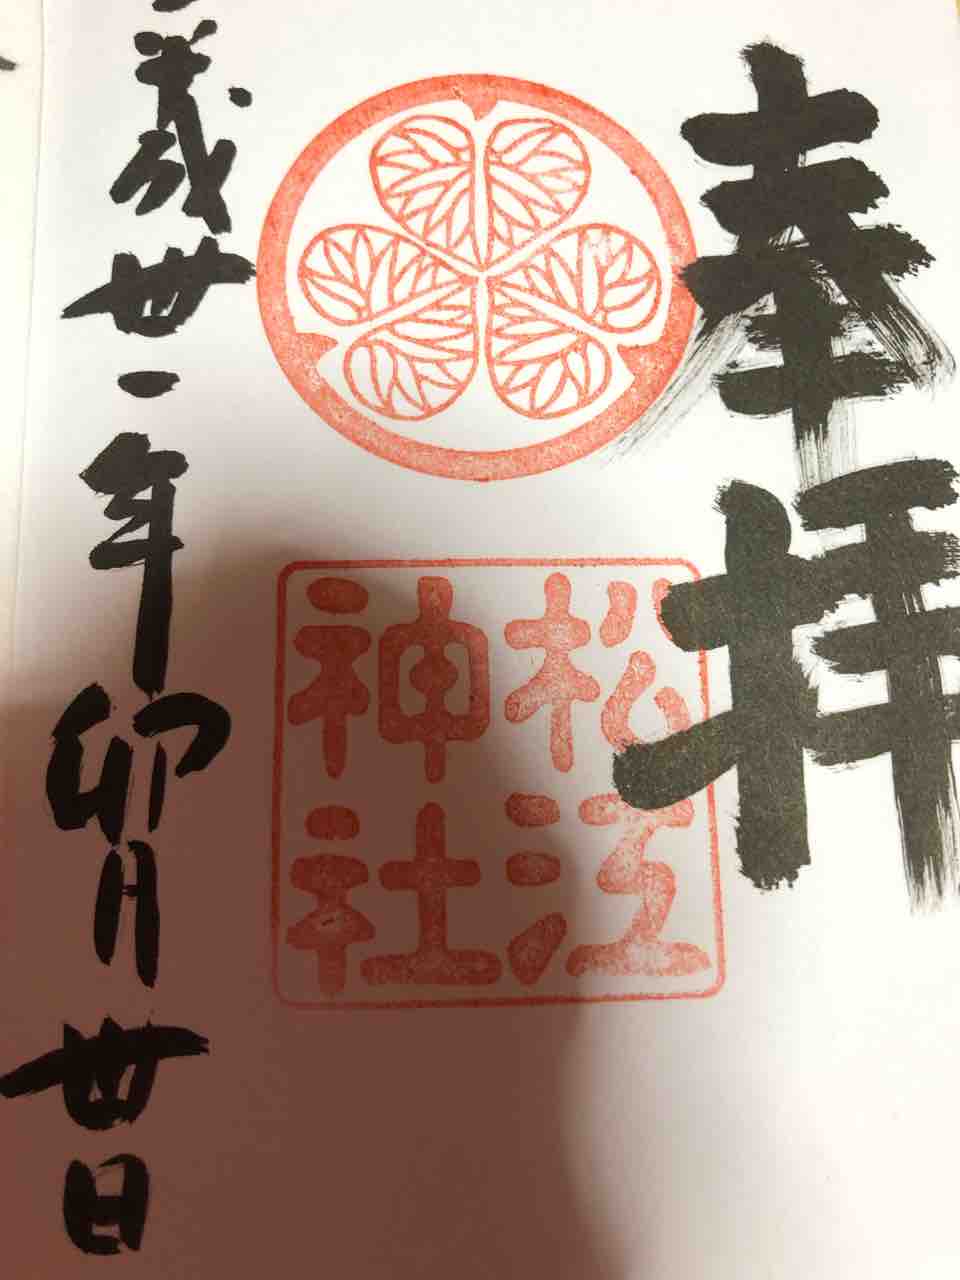 奉拝
松江
神社
平成丗一年卯月丗日